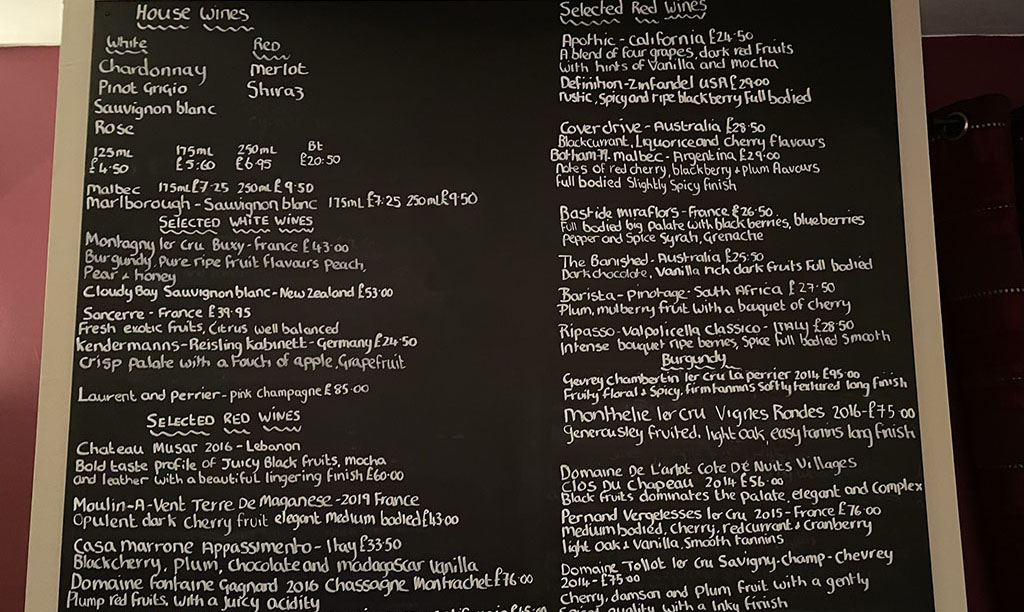 House Wines
White
Red
Chardonnay
Merlot
Pinot Grigio
Shiraz
Sauvignon blanc
Rose
125ml 175ml 250ml Bt
£4·50 £5·60 £6·95 £20·50
Malbec 175ml £7·25 250ml £9·50
Marlborough - Sauvignon blanc 175ml £7·25 250ml £9·50
Selected White Wines
Montagny 1er Cru Buxy - France £43·00
Burgundy, Pure ripe fruit flavours Peach,
Pear + honey
Cloudy Bay Sauvignon blanc - New Zealand £53·00
Sancerre - France £39·95
Fresh exotic fruits, Citrus well balanced
Kendermanns - Reisling Kabinett - Germany £24·50
Crisp palate with a touch of apple, Grapefruit
Laurent and Perrier - pink champagne £85·00
Selected Red Wines
Chateau Musar 2016 - Lebanon
Bold taste profile of Juicy Black fruits, mocha
and leather with a beautiful lingering finish £60·00
Moulin-A-Vent Terre De Maganese - 2019 France
Opulent dark cherry fruit elegant medium bodied £43·00
Casa Marrone Appassimento - Itay £33·50
Blackcherry, Plum, chocolate and madagascar Vanilla
Domaine Fontaine Gagnard 2016 Chassagne Montrachet £76·00
Plump red fruits, with a juicy acidity
Selected Red Wines
Apothic - California £24·50
A blend of four grapes, dark red Fruits
with hints of Vanilla and mocha
Definition - Zinfandel USA £29·00
rustic, Spicy and ripe blackberry Full bodied
Coverdrive - Australia £28·50
Blackcurrant, Liquorice and cherry flavours
Botham Malbec - Argentina £29·00
Notes of red cherry, blackberry + Plum flavours
Full bodied Slightly Spicy finish
Bastide Miraflors - France £26·50
Full bodied big palate with black berries, blueberries
Pepper and Spice Syrah, Grenache
The Banished - Australia £25·50
Dark chocolate, Vanilla rich dark fruits Full bodied
Barista - Pinotage - South Africa £27·50
Plum, mulberry fruit with a bauquet of cherry
Ripasso - Valpolicella Classico - ITALY £28·50
Intense bouquet ripe berries, Spice Full bodied Smooth
Burgundy
Gevrey chambertin 1er Cru La perrier 2014 £95·00
Fruity, Floral & Spicy, Firm tannins Softly textured long finish
Monthelie 1er Cru Vignes Rondes 2016 - £75·00
Generousley fruited, light oak, easy tannins long finish
Domaine De L'arlot Cote De Nuits Villages
Clos Du Chapeau 2014 £56·00
Black fruits dominates the palate, elegant and Complex
Pernand Vergelesses 1er Cru 2015 - France £76·00
medium bodied, Cherry, redcurrant & Cranberry
light Oak & Vanilla, Smooth Tannins
Domaine Tollot 1er Cru Savigny-Champ-Chevrey
2014 - £75·00
Cherry, damson and Plum fruit with a gently
quality with a Inky finish